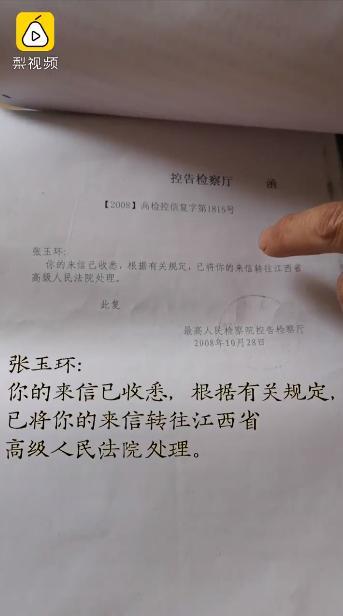 梨视频
控告检察厅 函
【2008】高检控信复字第1815号
张玉环:
你的来信已收悉，根据有关规定，已将你的来信转往江西省
高级人民法院处理。
此复
最高人民检察院控告检察厅
2008年10月28日
张玉环:
你的来信已收悉，根据有关规定，
已将你的来信转往江西省
高级人民法院处理。